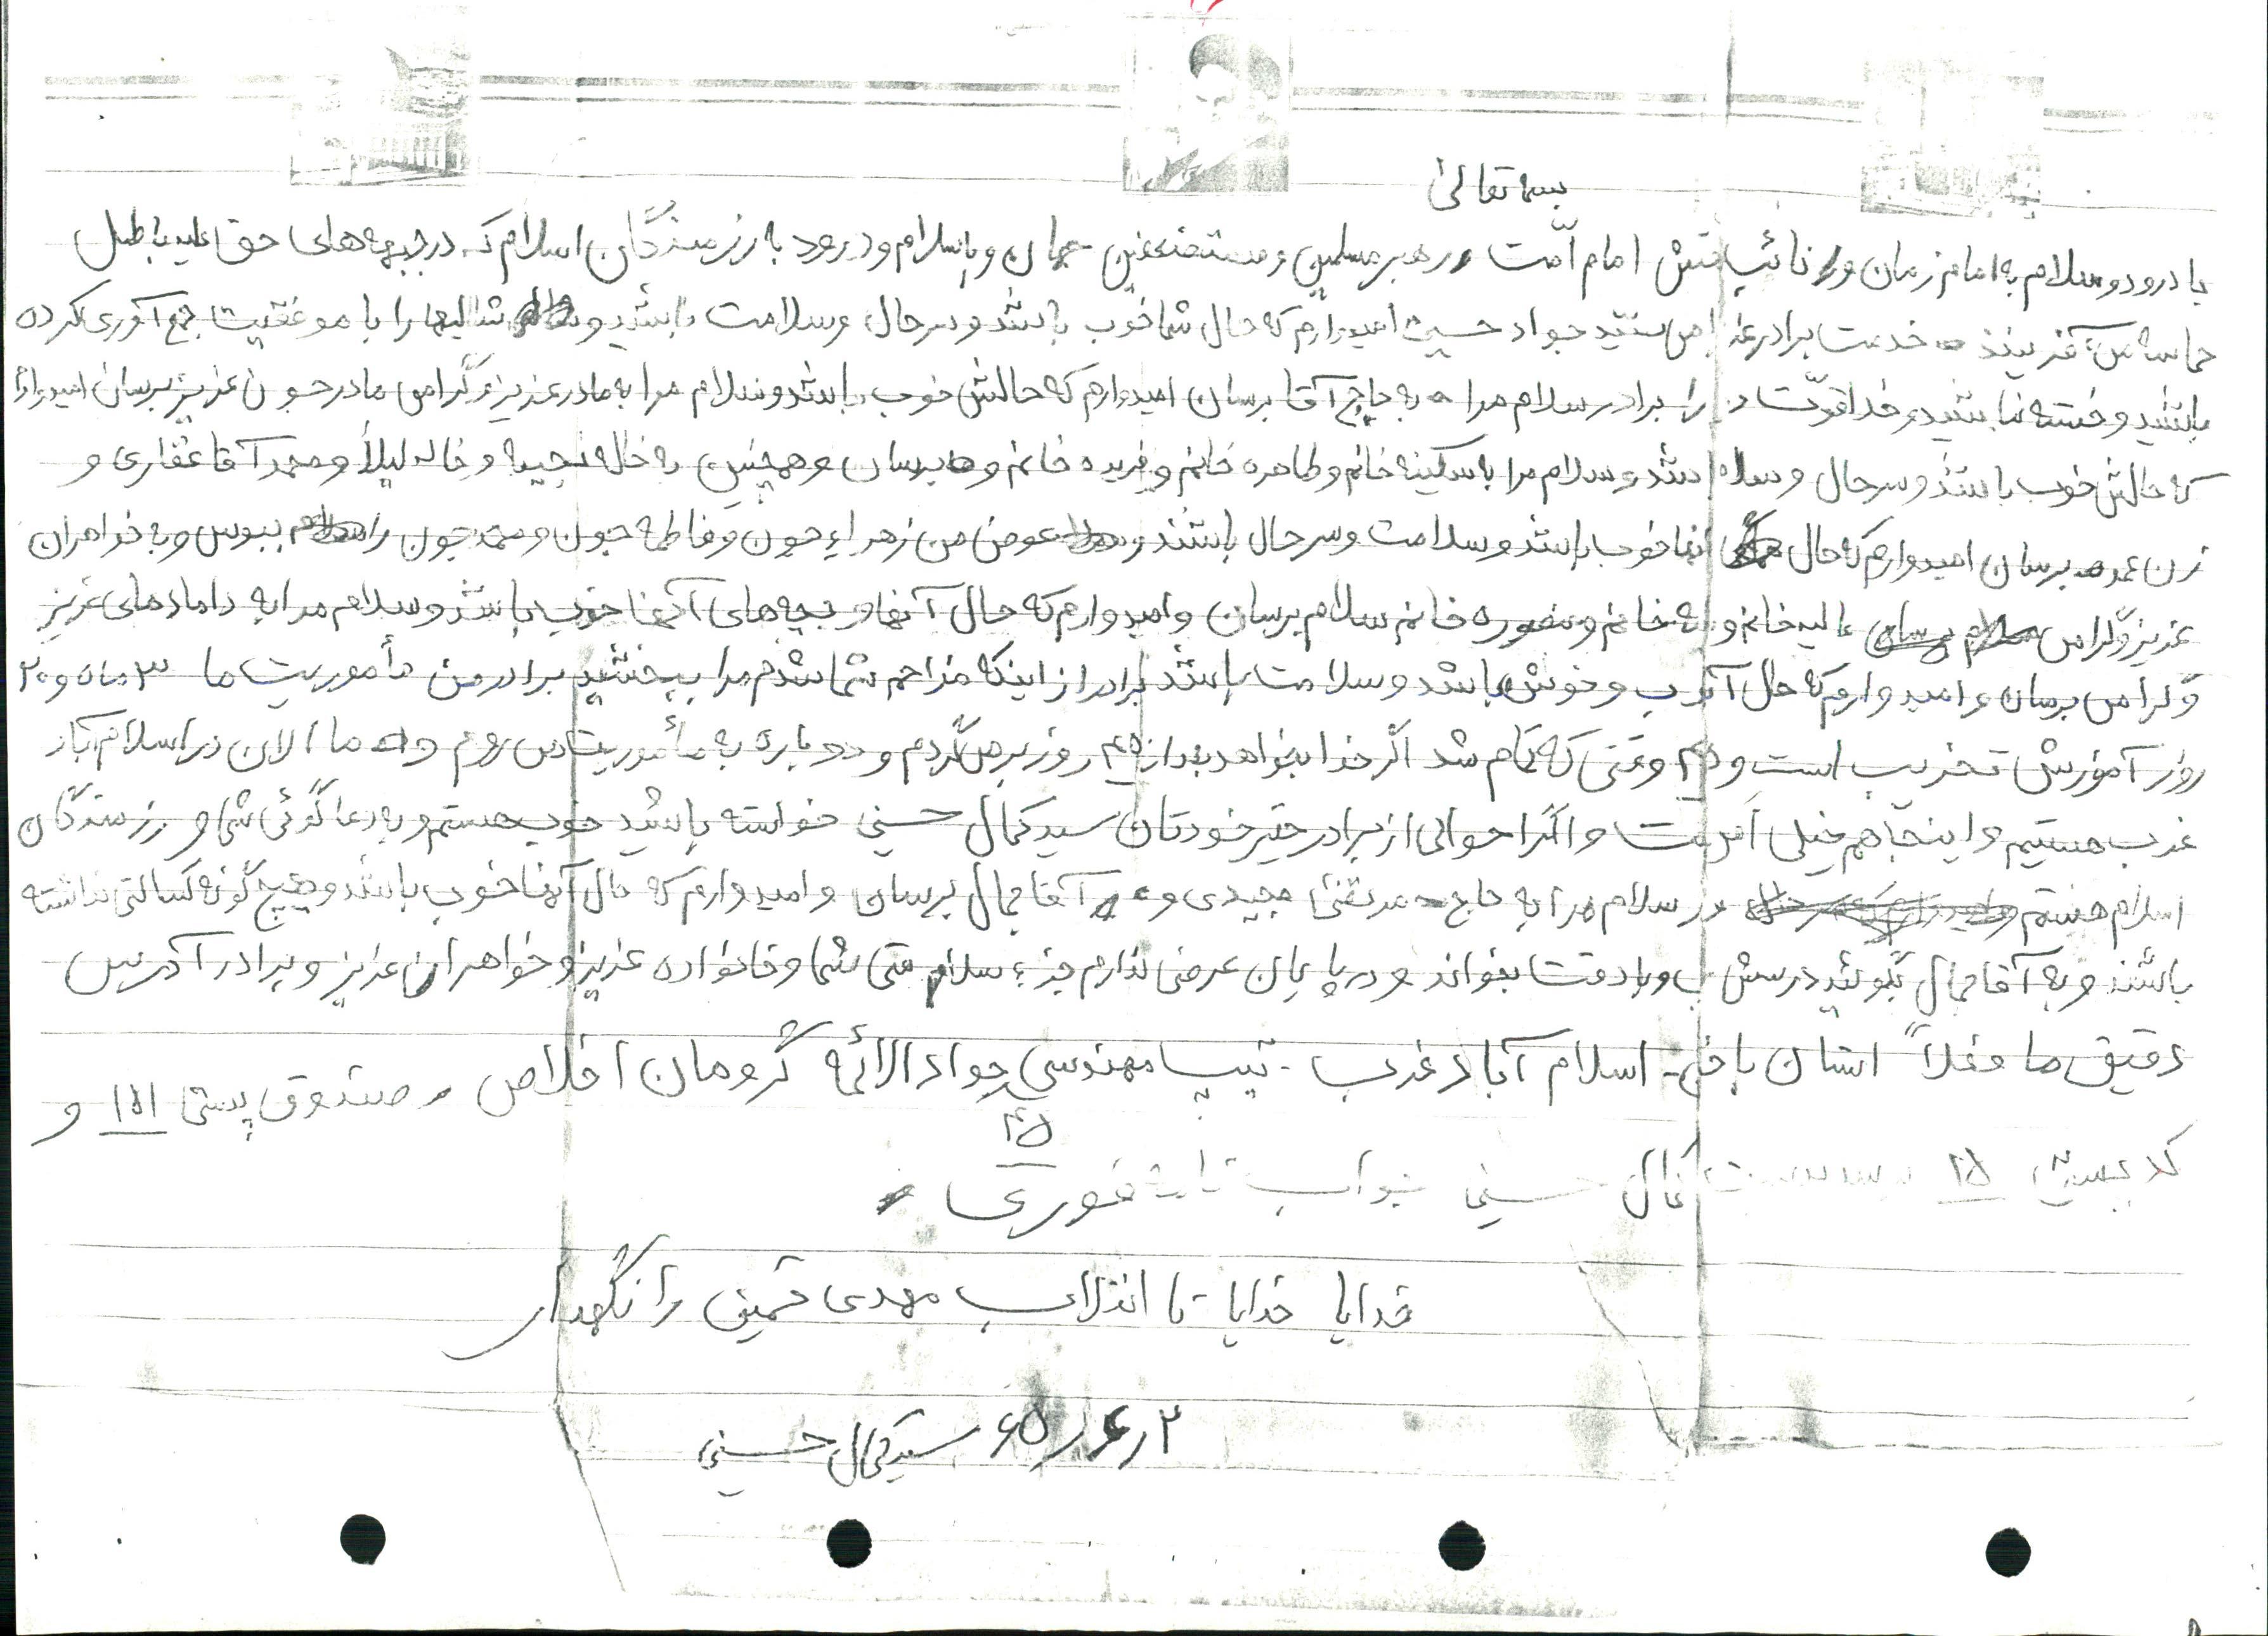 بسمه تعالی
با درود و سلام به امام زمان و نائب امام امّت رهبر مسلمین و مستضعفین جهان و با سلام و درود به رزمندگان اسلام که در جبهه‌های حق علیه باطل
حماسه می‌آفرینند خدمت برادر سید جواد حسینی امیدوارم که حال شما خوب باشد و سرحال و سلامت باشید و شالیها را با موفقیت جمع آوری کرده
باشید و خسته نباشید و خدا قوّت برادر سلام مرا به حاج آقا برسان امیدوارم که حالش خوب باشد و سلام مرا به مادر عزیز و گرامی مادر جون عزیز برسان
که حالش خوب باشد و سرحال و باشد و سلام مرا به سکینه خانم و طاهره خانم و فریده خانم و برسان و همچنین به خاله نجیبه و خاله لیلا و محمد آقا غفاری و
زن عمو برسان امیدوارم که حال آنها خوب باشد و سلامت و سرحال باشند و عوض من زهراء جون و فاطمه جون و محمد جون را ببوس و به خواهران
عزیز و گرامی عالیه خانم و خانم و منصوره خانم سلام برسان و امیدوارم که حال آنها و بچه‌های آنها خوب باشد و سلام مرا به دامادهای عزیز
و گرامی برسان و امیدوارم که حال و خوش باشد و سلامت باشد برادر از اینکه مزاحم شما شدم مرا ببخشید برادر من مأموریت ما ۳ ماه و ۲۰
روز آموزش تخریب است و وقتی که تمام شد اگر خدا بخواهد بعد از ۴۵ روز برمی‌گردم و دوباره به مأموریت می‌روم و ما الان در اسلام آباد
غرب هستیم و اینجا هم خیلی است و اگر احوالی از برادر حقیر خودتان سید کمال حسینی خواسته باشید خوب هستم و به دعا گوئی شما و رزمندگان
اسلام هستم سلام مرا به حاج مرتضی مجیدی و آقا جمال برسان و امیدوارم که حال آنها خوب باشد و هیچ گونه کسالتی نداشته
باشند و به آقا جمال بگوئید درسش و با دقت بخواند و در پایان عرضی ندارم جزء سلامتی شما و خانواده عزیز و خواهران عزیز و برادر آدرس
دقیق ما فعلاً استان باختر اسلام آباد غرب - تیپ مهندسی جواد الائمه گروهان اخلاص صندوق پستی ۱۵۱ و
کد پستی ۴۵ کمال حسینی جواب فوری
۴۵
خدایا خدایا تا انقلاب مهدی خمینی را نگهدار
۲ر۶ر۶۵ سید کمال حسینی